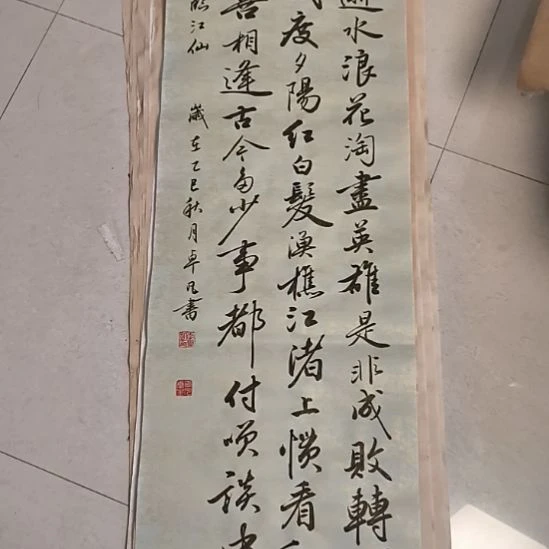 逝水浪花淘盡英雄是非成敗轉
度夕陽紅白髮漁樵江渚上慣看
喜相逢古今多少事都付笑談中
臨江仙
歲在乙巳秋月卓凡書